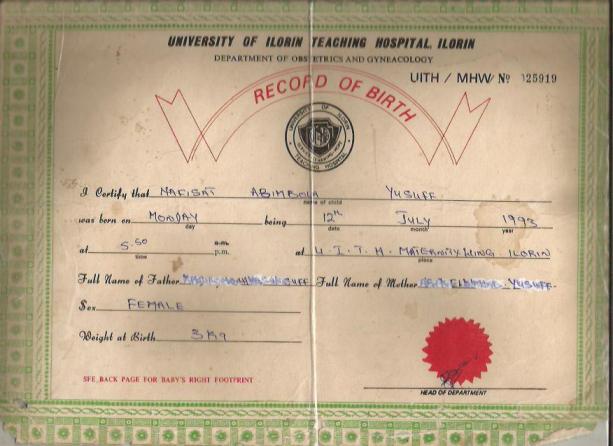 UNIVERSITY OF ILORIN TEACHING HOSPITAL, ILORIN
DEPARTMENT OF OBSTETRICS AND GYNEACOLOGY
UITH / MHW/ Nº 025919
RECORD OF BIRTH
UNIVERSITY OF ILORIN
TEACHING HOSPITAL
I Certify that NAFISAT ABIMBOLA YUSUFF
name of child
was born on MONDAY being 12th JULY 1993
day date month year
at 5.50 a.m. p.m. at U.I.T.H. MATERNITY WING ILORIN
time place
Full Name of Father Full Name of Mother YUSUFF
Sex FEMALE
Weight at Birth 3Kg
SEE BACK PAGE FOR BABY'S RIGHT FOOTPRINT
HEAD OF DEPARTMENT